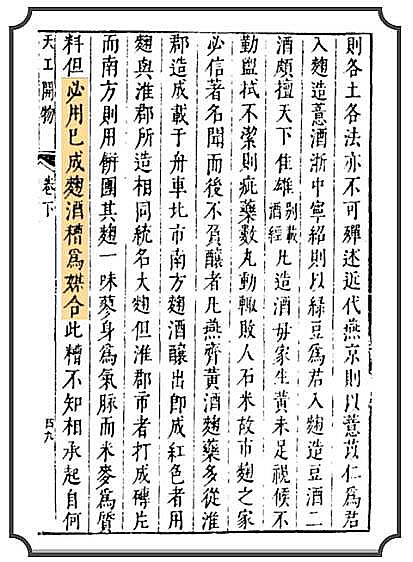 則各土各法亦不可殫述近代燕京則以薏苡仁爲君
入麴造薏酒浙中寧紹則以綠豆爲君入麴造豆酒二
酒頗擅天下佳雄別載酒經凡造酒毋家生黃未足視候不
勤盥拭不潔則疵藥數丸動輒敗人石米故市麴之家
必信著名聞而後不負釀者凡燕齊黃酒麴藥多從淮
郡造成載于舟車北市南方麴酒釀出卽成紅色者用
麴與淮郡所造相同統名大麴但淮郡市者打成磚片
而南方則用餅團其麴一味蓼身爲氣脉而米麥爲質
料但必用巳成麴酒糟爲媒合此糟不知相承起自何
天工開物
卷下
四九